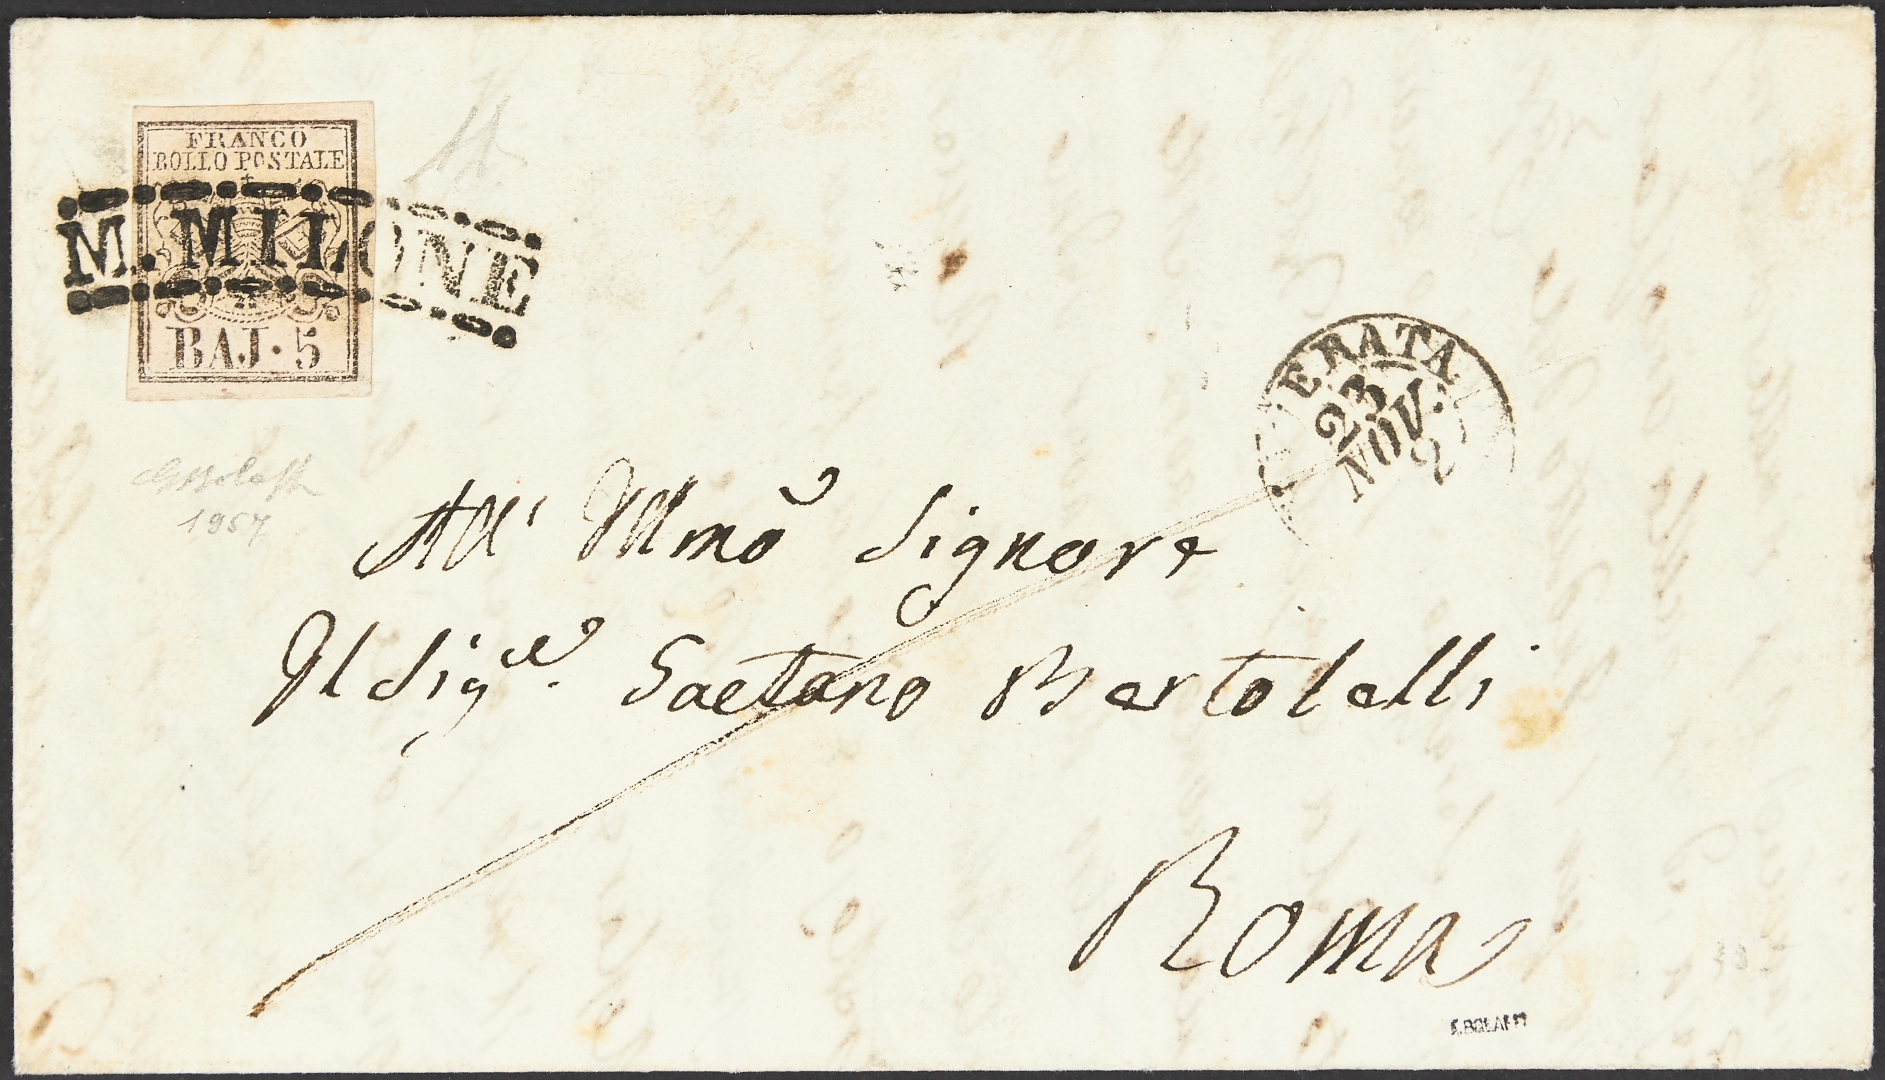 FRANCO
BOLLO POSTALE
M. MILONE
BAJ · 5
ERATA
23
NOV.
1957
All' Illmo Signore
Il Sigre. Gaetano Bertolelli
Roma